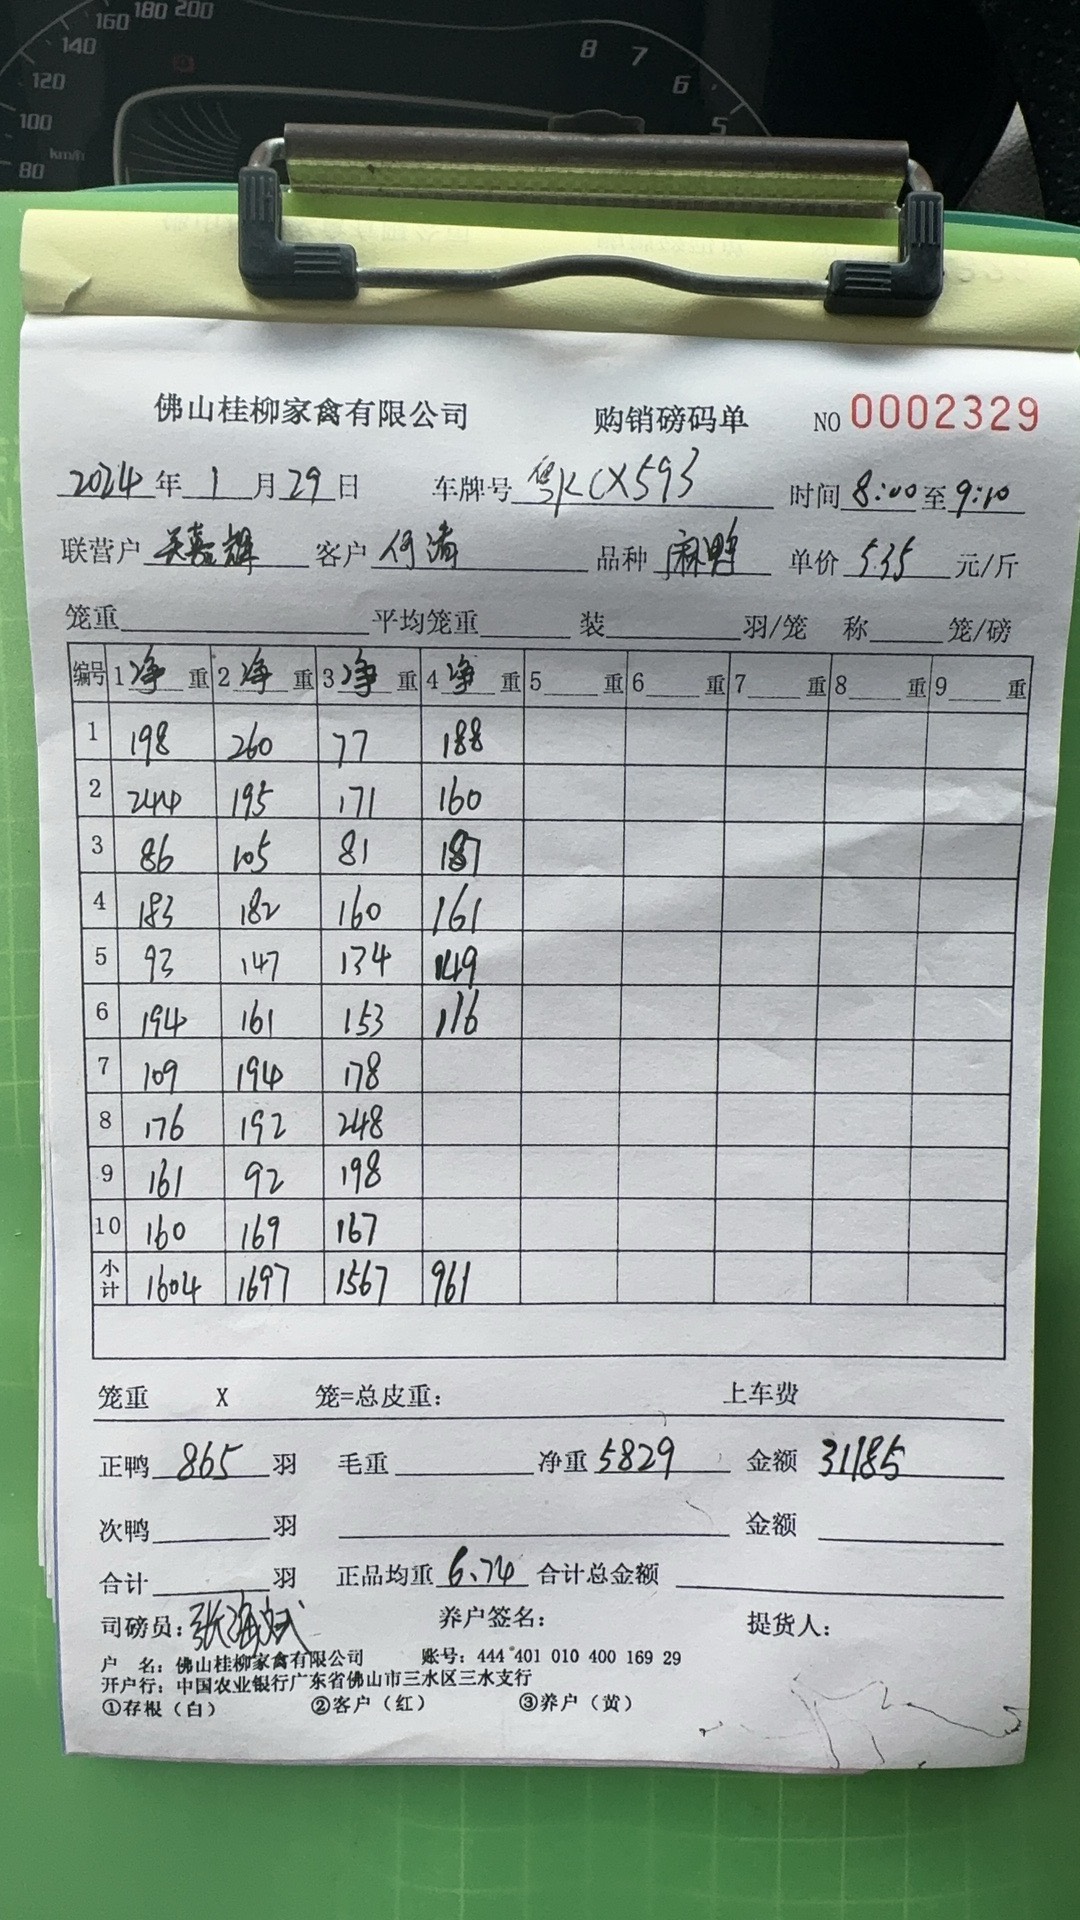 160 180 200
140
120
100
km/h
80
8 7 6 5
佛山桂柳家禽有限公司 购销磅码单 NO 0002329
2024年 1 月 29 日 车牌号 粤KCX593 时间 8:00 至 9:10
联营户 吴嘉辉 客户 何清 品种 麻鸭 单价 5.35 元/斤
笼重 平均笼重 装 羽/笼 称 笼/磅
编号 1 净 重 2 净 重 3 净 重 4 净 重 5 重 6 重 7 重 8 重 9 重
1 198 260 77 188
2 244 195 171 160
3 86 105 81 187
4 183 182 160 161
5 93 147 134 149
6 194 161 153 116
7 109 194 178
8 176 192 248
9 161 92 198
10 160 169 167
小计 1604 1697 1567 961
笼重 X 笼=总皮重: 上车费
正鸭 865 羽 毛重 净重 5829 金额 31185
次鸭 羽 金额
合计 羽 正品均重 6.74 合计总金额
司磅员: 养户签名: 提货人:
户 名: 佛山桂柳家禽有限公司 账号: 444 401 010 400 169 29
开户行: 中国农业银行广东省佛山市三水区三水支行
①存根（白） ②客户（红） ③养户（黄）